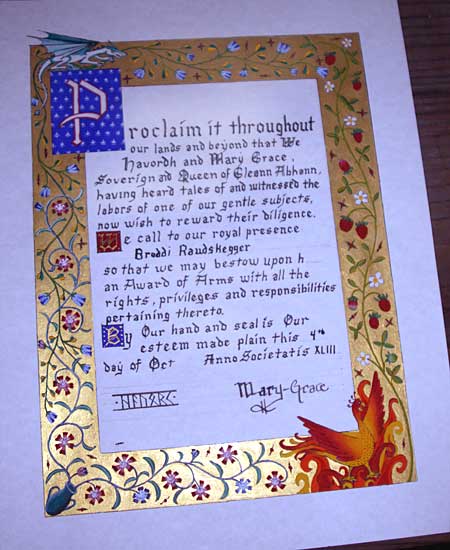 Proclaim it throughout
our lands and beyond that We
Havordh and Mary Grace,
Soverign and Queen of Gleann Abhann,
having heard tales of and witnessed the
labors of one of our gentle subjects,
now wish to reward their diligence.
We call to our royal presence
Broddi Raudskegger
so that we may bestow upon h
an Award of Arms with all the
rights, privileges and responsibilities
pertaining thereto.
By Our hand and seal is Our
esteem made plain this 4th
day of Oct Anno Societatis XLIII
Mary-Grace